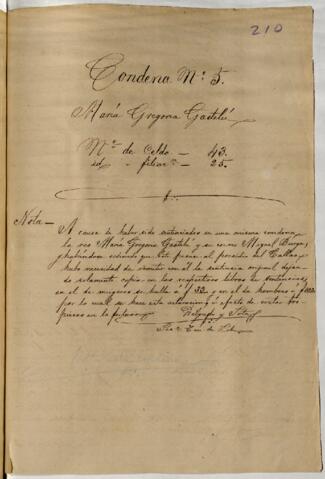 210
Condena Nº 5.
María Gregoria Gastelú
Nº de Celda — 43.
id. " filiacn — 25.
Nota — A causa de haber sido sentenciados en una misma condena
la reo María Gregoria Gastelú y su co-reo Miguel Burga
y habiéndose ordenado que éste fuese al presidio del Callao
hubo necesidad de remitir con él la sentencia original dejan-
do solamente copia en los respectivos libros de sentencias
en el de mugeres se halla á f 32 y en el de hombres á f
por lo cual se hace esta anotacion á efecto de
Delgado y Soto